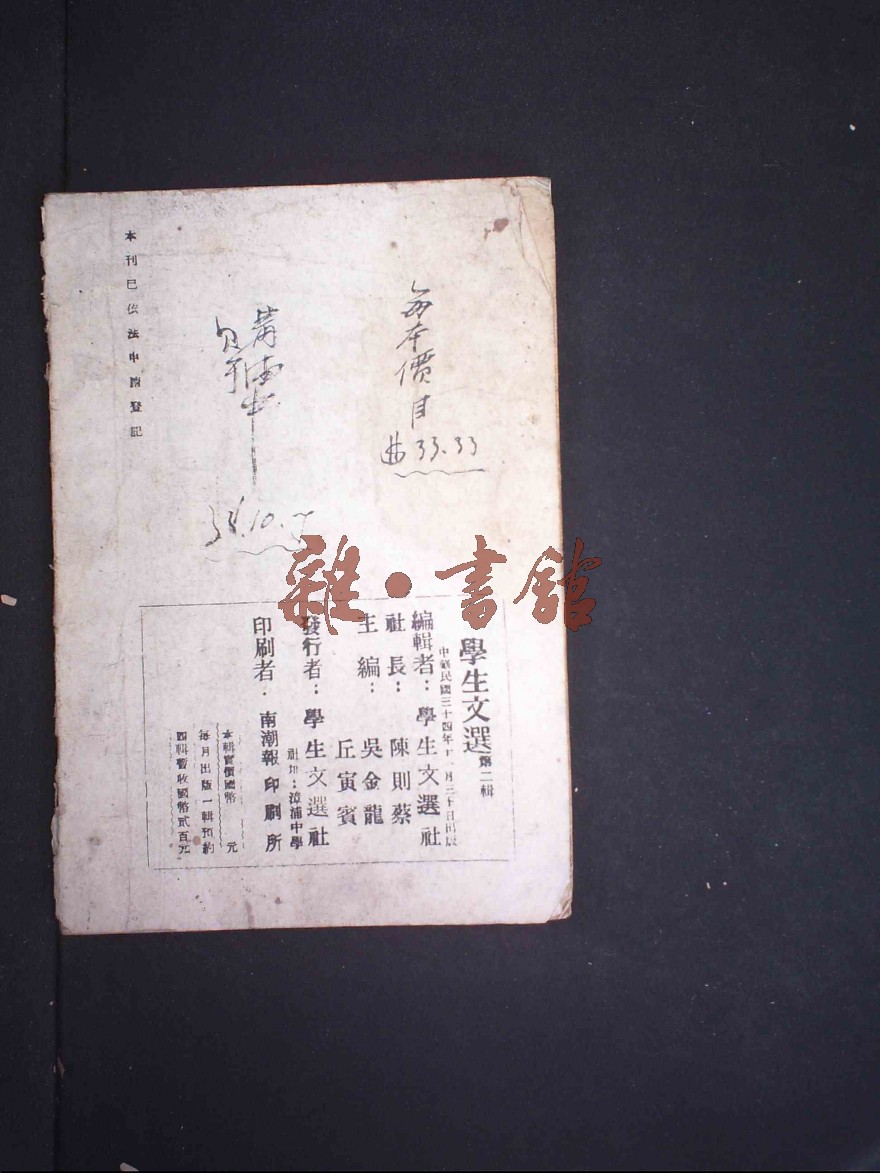 每本價目
33.33
購
本刊已依法申請登記
雜·書館
學生文選 第二輯
中華民國三十四年十一月三十日出版
編輯者：學生文選社
社長：陳則蔡
主編：吳金龍
丘寅賓
發行者：學生文選社
社址：漳浦中學
印刷者．南潮報印刷所
本輯實價國幣　元
每月出版一輯預約
四輯暫收國幣貳百元